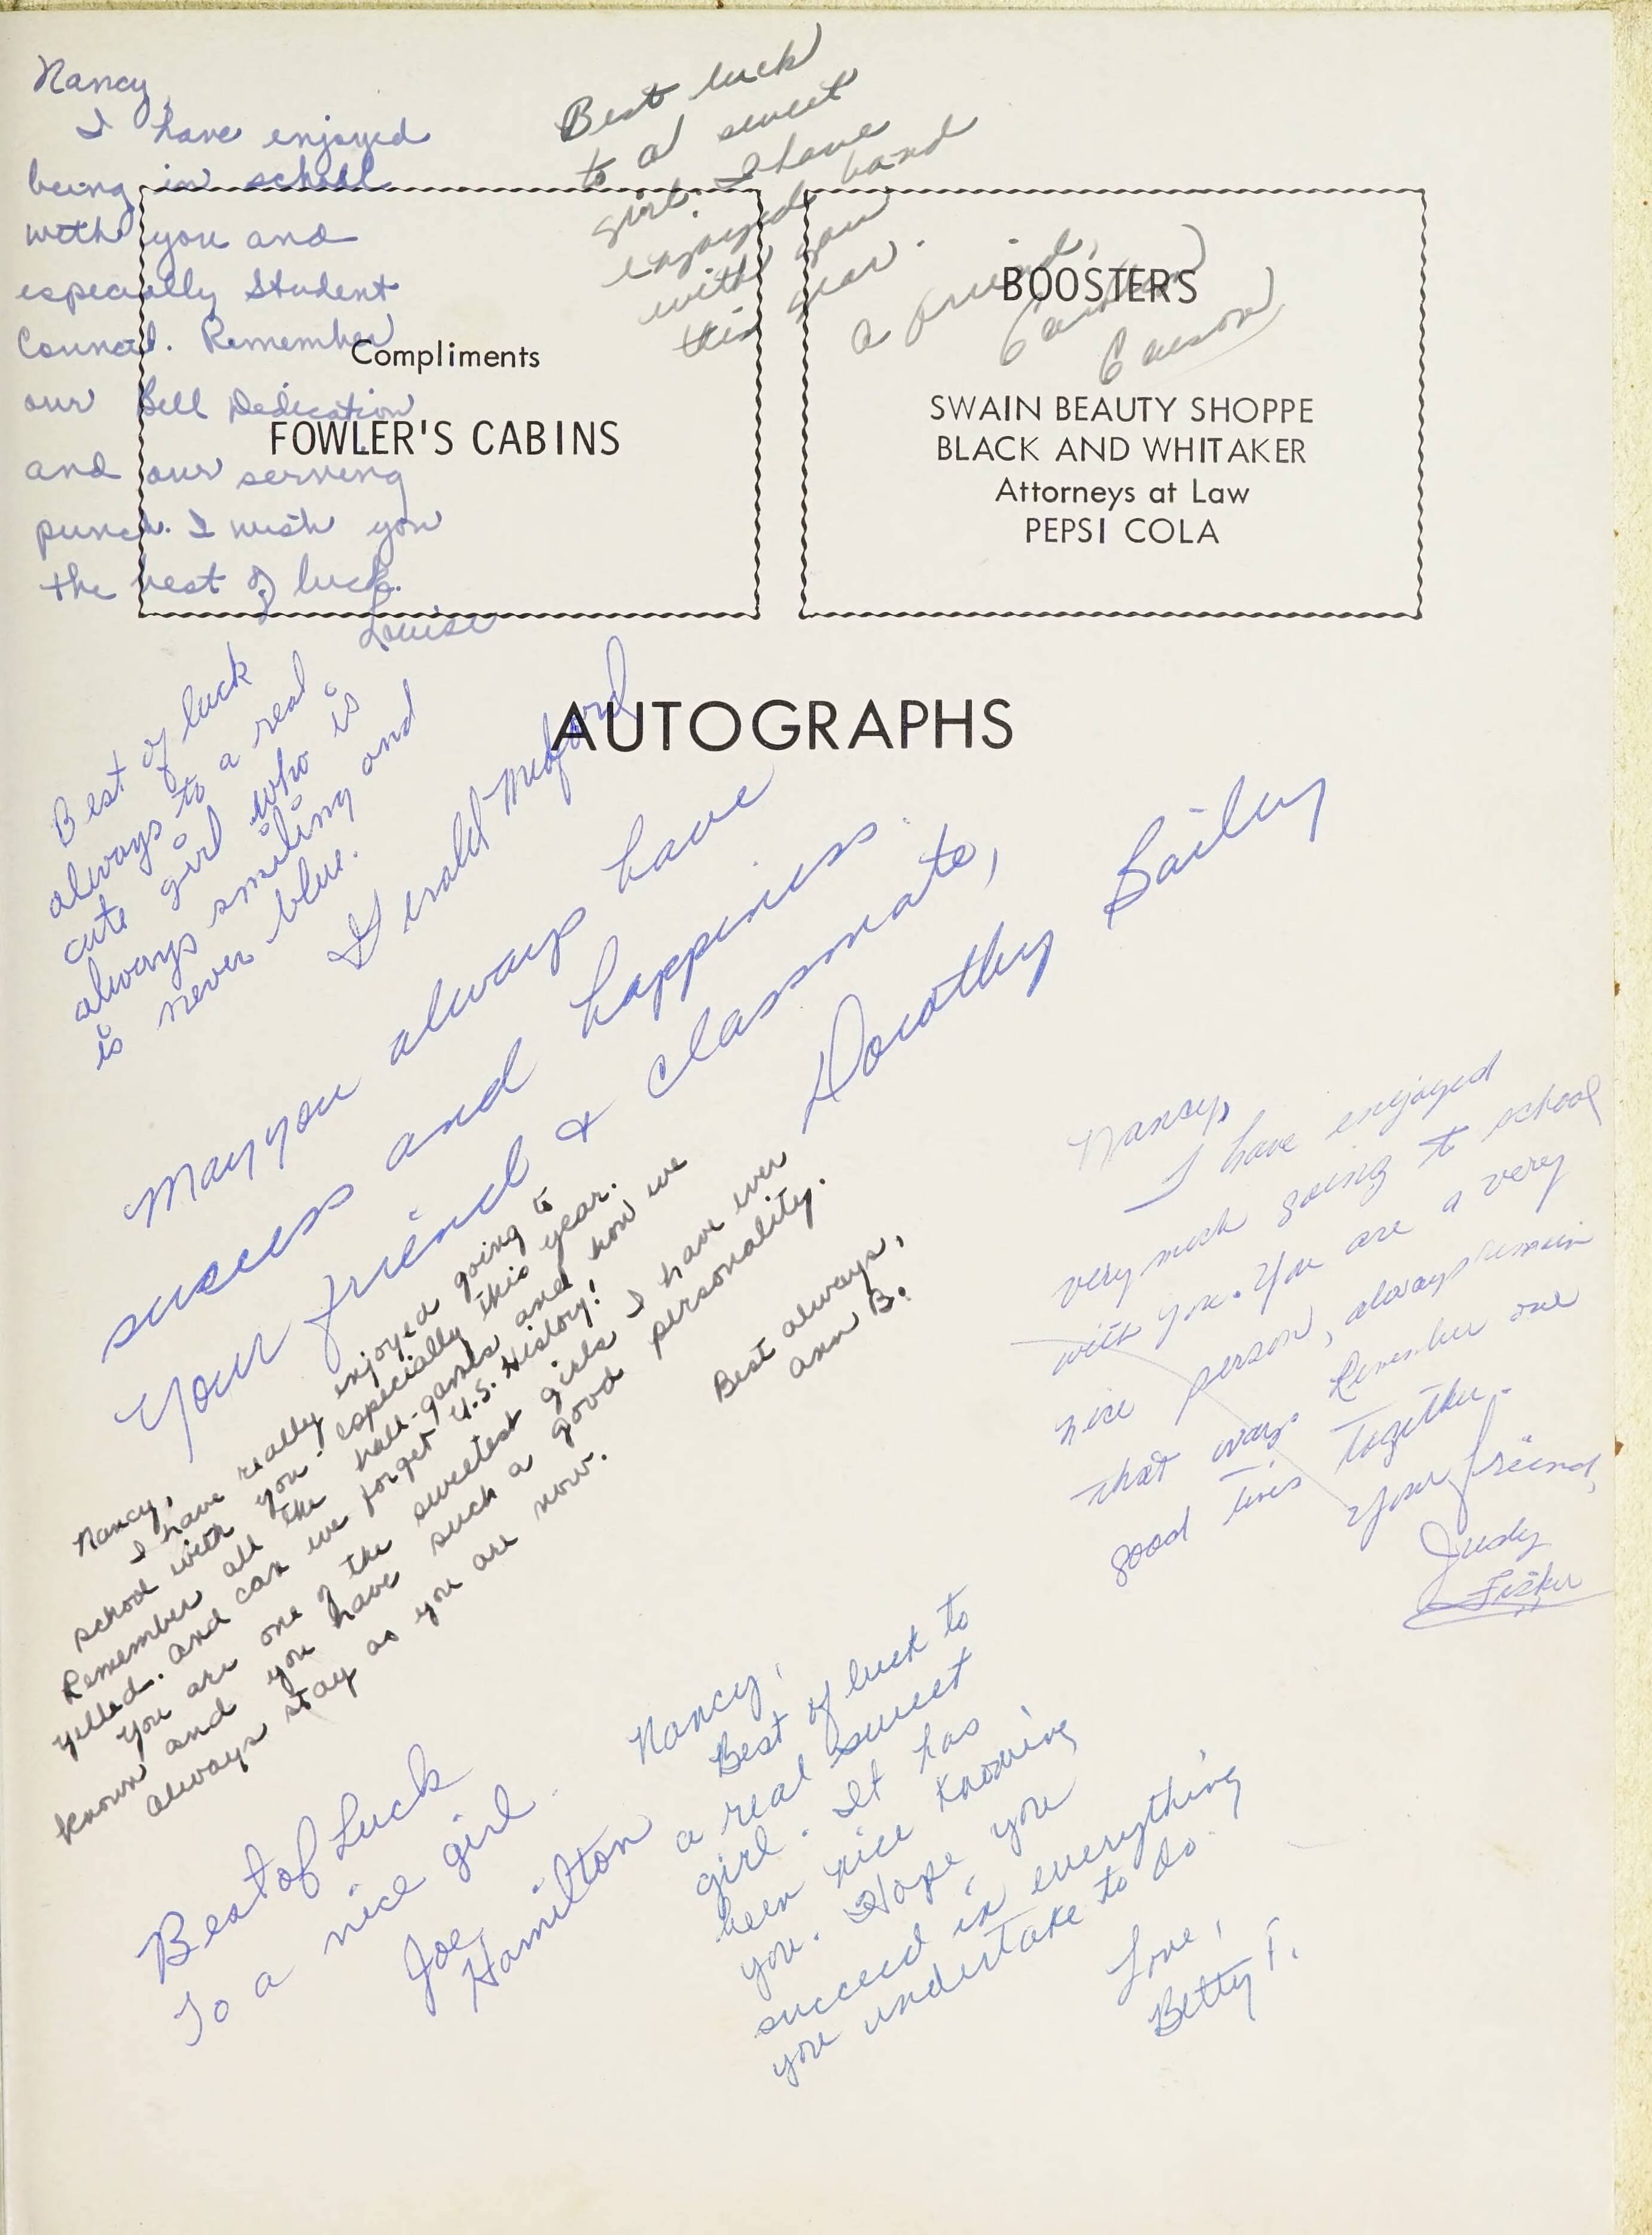 Nancy,
I have enjoyed
being in school
with you and
especially Student
Council. Remember
our Bell Dedication
and our serving
punch. I wish you
the best of luck.
Louise
Best luck
to a sweet
girl. I have
enjoyed band
with you
this year.
a friend,
Carson
Compliments
FOWLER'S CABINS
BOOSTERS
SWAIN BEAUTY SHOPPE
BLACK AND WHITAKER
Attorneys at Law
PEPSI COLA
AUTOGRAPHS
Best of luck
always to a real
cute girl who is
always smiling and
is never blue.
Gerald Medford
May you always have
success and happiness.
Your friend & classmate,
Dorothy Bailey
Nancy,
I have really enjoyed going to
school with you - especially this year.
Remember all the ball-games and how we
yelled. And can we forget U.S. History!
You are one of the sweetest girls I have ever
known and you have such a good personality.
Always stay as you are now.
Best always,
Ann B.
Nancy,
I have enjoyed
very much going to school
with you. You are a very
nice person, always remain
that way. Remember our
good times together.
Your freind,
Judy
Fisher
Best of Luck
To a nice girl.
Joe
Hamilton
Nancy,
Best of luck to
a real sweet
girl. It has
been nice knowing
you. Hope you
succeed in everything
you undertake to do.
Love,
Betty T.